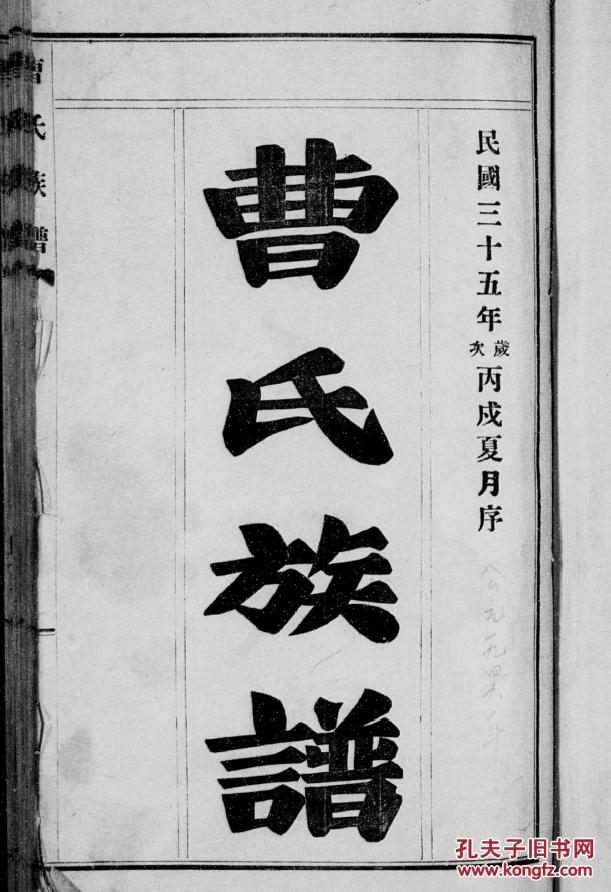 民國三十五年歲次丙戌夏月序
公元一九四六年
曹氏族譜
曹氏族譜
孔夫子旧书网
www.kongfz.com